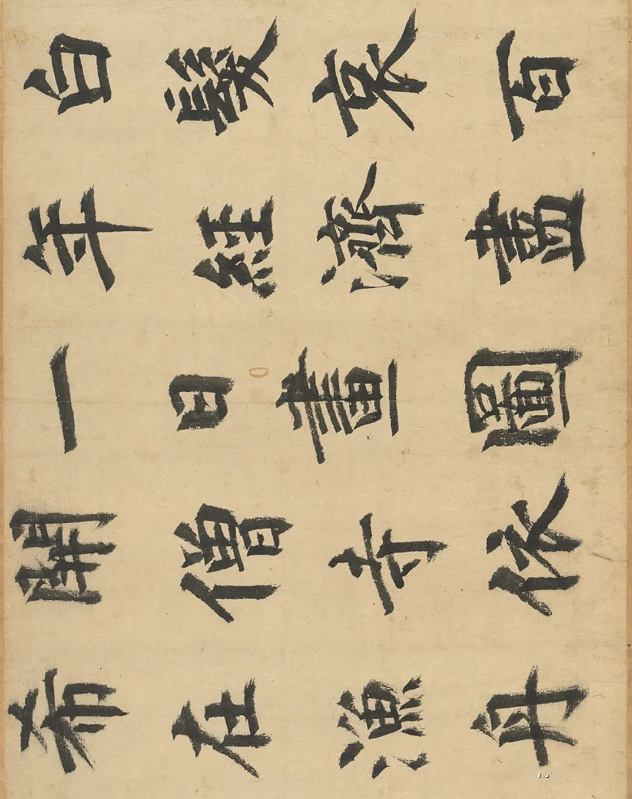 白髮衰百
年經濟盡
一日畫圖
開僧寺依
希在漁舟